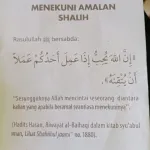 MENEKUNI AMALAN
SHALIH
Rasulullah ﷺ bersabda:
«إِنَّ اللهَ يُحِبُّ إِذَا عَمِلَ أَحَدُكُمْ عَمَلًا
أَنْ يُتْقِنَهُ»
"Sesungguhnya Allah mencintai seseorang
(Hadits Hasan, Riwayat al-Baihaqi dalam kitab syu'abul
iman, Lihat Shahihul Jaami' no. 1880).